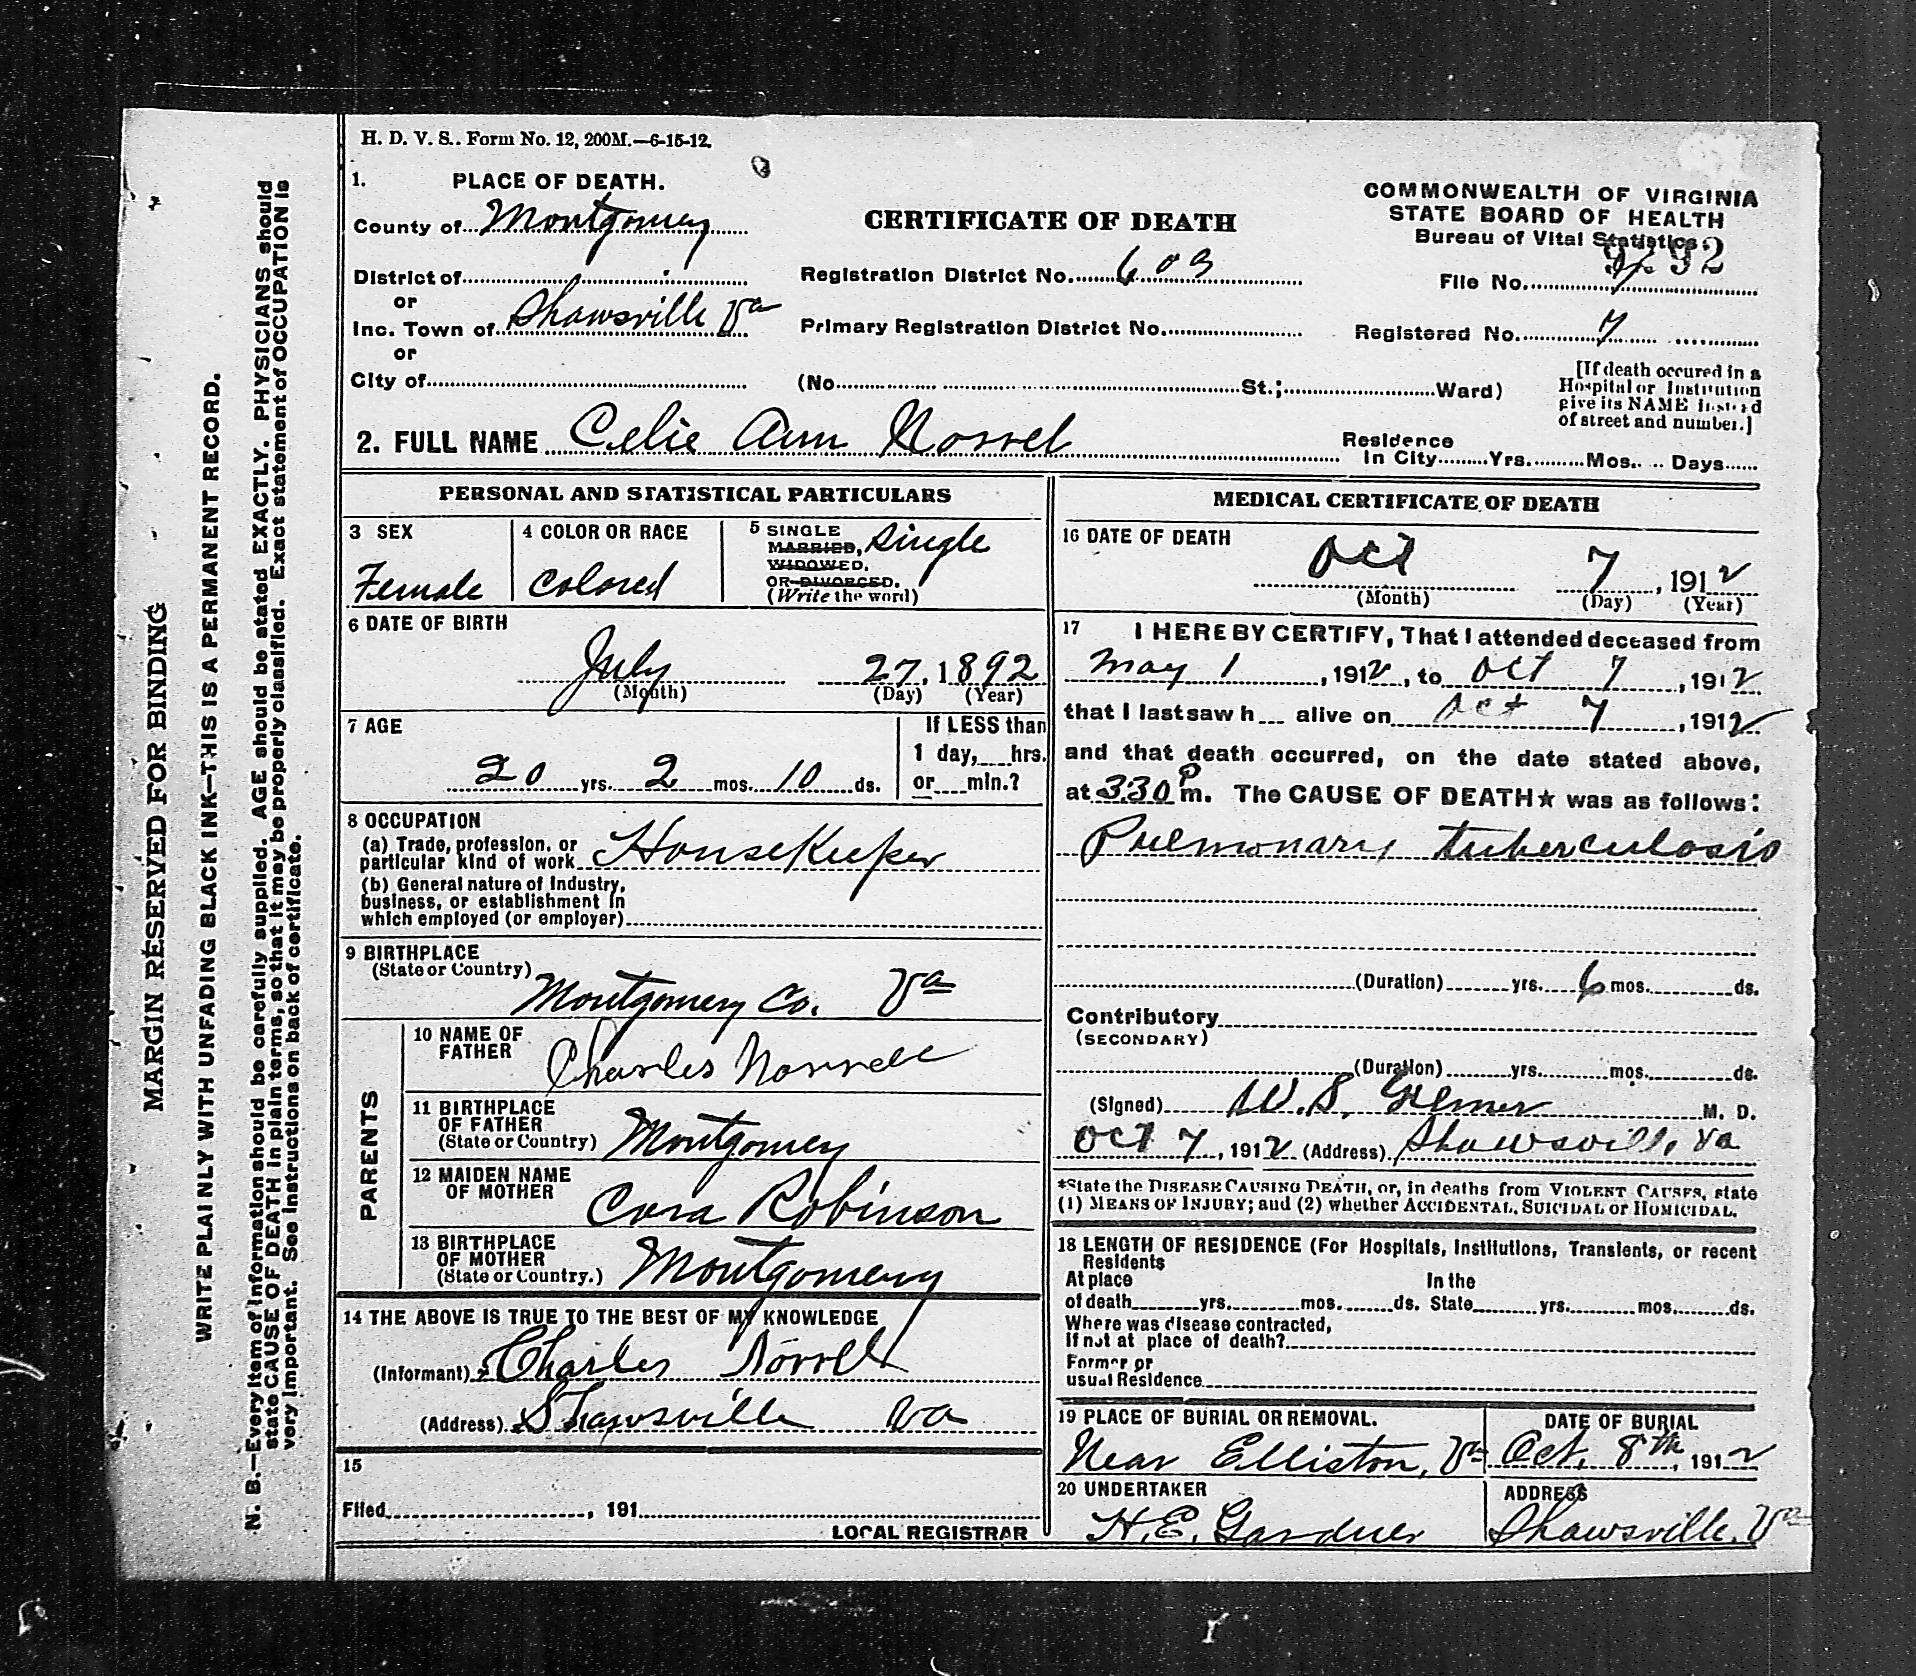 H. D. V. S.. Form No. 12, 200M.—6-15-12.
1. PLACE OF DEATH.
County of Montgomery
District of
or
Inc. Town of Shawsville Va
or
City of
CERTIFICATE OF DEATH
Registration District No. 603
Primary Registration District No.
(No. St.; Ward)
COMMONWEALTH OF VIRGINIA
STATE BOARD OF HEALTH
Bureau of Vital Statistics
File No.
Registered No. 7
[If death occured in a
Hospital or Institution
give its NAME instead
of street and number.]
2. FULL NAME Celie Ann Norrel
Residence
In City Yrs. Mos. Days
PERSONAL AND STATISTICAL PARTICULARS
3 SEX
Female
4 COLOR OR RACE
Colored
5 SINGLE
MARRIED,
WIDOWED,
OR DIVORCED.
(Write the word)
Single
6 DATE OF BIRTH
July 27, 1892
(Month) (Day) (Year)
7 AGE
20 yrs. 2 mos. 10 ds.
If LESS than
1 day, hrs.
or min.?
8 OCCUPATION
(a) Trade, profession, or
particular kind of work Housekeeper
(b) General nature of Industry,
business, or establishment in
which employed (or employer)
9 BIRTHPLACE
(State or Country)
Montgomery Co. Va
PARENTS
10 NAME OF
FATHER
Charles Norrell
11 BIRTHPLACE
OF FATHER
(State or Country) Montgomery
12 MAIDEN NAME
OF MOTHER
Cora Robinson
13 BIRTHPLACE
OF MOTHER
(State or Country.) Montgomery
14 THE ABOVE IS TRUE TO THE BEST OF MY KNOWLEDGE
(Informant) Charles Norrel
(Address) Shawsville Va
15
Filed , 191
LOCAL REGISTRAR
MEDICAL CERTIFICATE OF DEATH
16 DATE OF DEATH
Oct 7, 1912
(Month) (Day) (Year)
17 I HEREBY CERTIFY, That I attended deceased from
May 1, 1912, to Oct 7, 1912
that I last saw h alive on Oct 7, 1912
and that death occurred, on the date stated above,
at 3.30 P m. The CAUSE OF DEATH★ was as follows:
Pulmonary tuberculosis
(Duration) yrs. 6 mos. ds.
Contributory
(SECONDARY)
(Duration) yrs. mos. ds.
(Signed) W.S. Gilmer M. D.
Oct 7, 1912 (Address) Shawsville, Va
*State the DISEASE CAUSING DEATH, or, in deaths from VIOLENT CAUSES, state
(1) MEANS OF INJURY; and (2) whether ACCIDENTAL, SUICIDAL or HOMICIDAL.
18 LENGTH OF RESIDENCE (For Hospitals, Institutions, Transients, or recent
Residents
At place In the
of death yrs. mos. ds. State yrs. mos. ds.
Where was disease contracted,
If not at place of death?
Former or
usual Residence
19 PLACE OF BURIAL OR REMOVAL.
Near Elliston, Va
DATE OF BURIAL
Oct. 8th, 1912
20 UNDERTAKER
H.E. Gardner
ADDRESS
Shawsville, Va
MARGIN RESERVED FOR BINDING
WRITE PLAINLY WITH UNFADING BLACK INK—THIS IS A PERMANENT RECORD.
N. B.—Every item of information should be carefully supplied. AGE should be stated EXACTLY. PHYSICIANS should
state CAUSE OF DEATH in plain terms, so that it may be properly classified. Exact statement of OCCUPATION is
very important. See instructions on back of certificate.